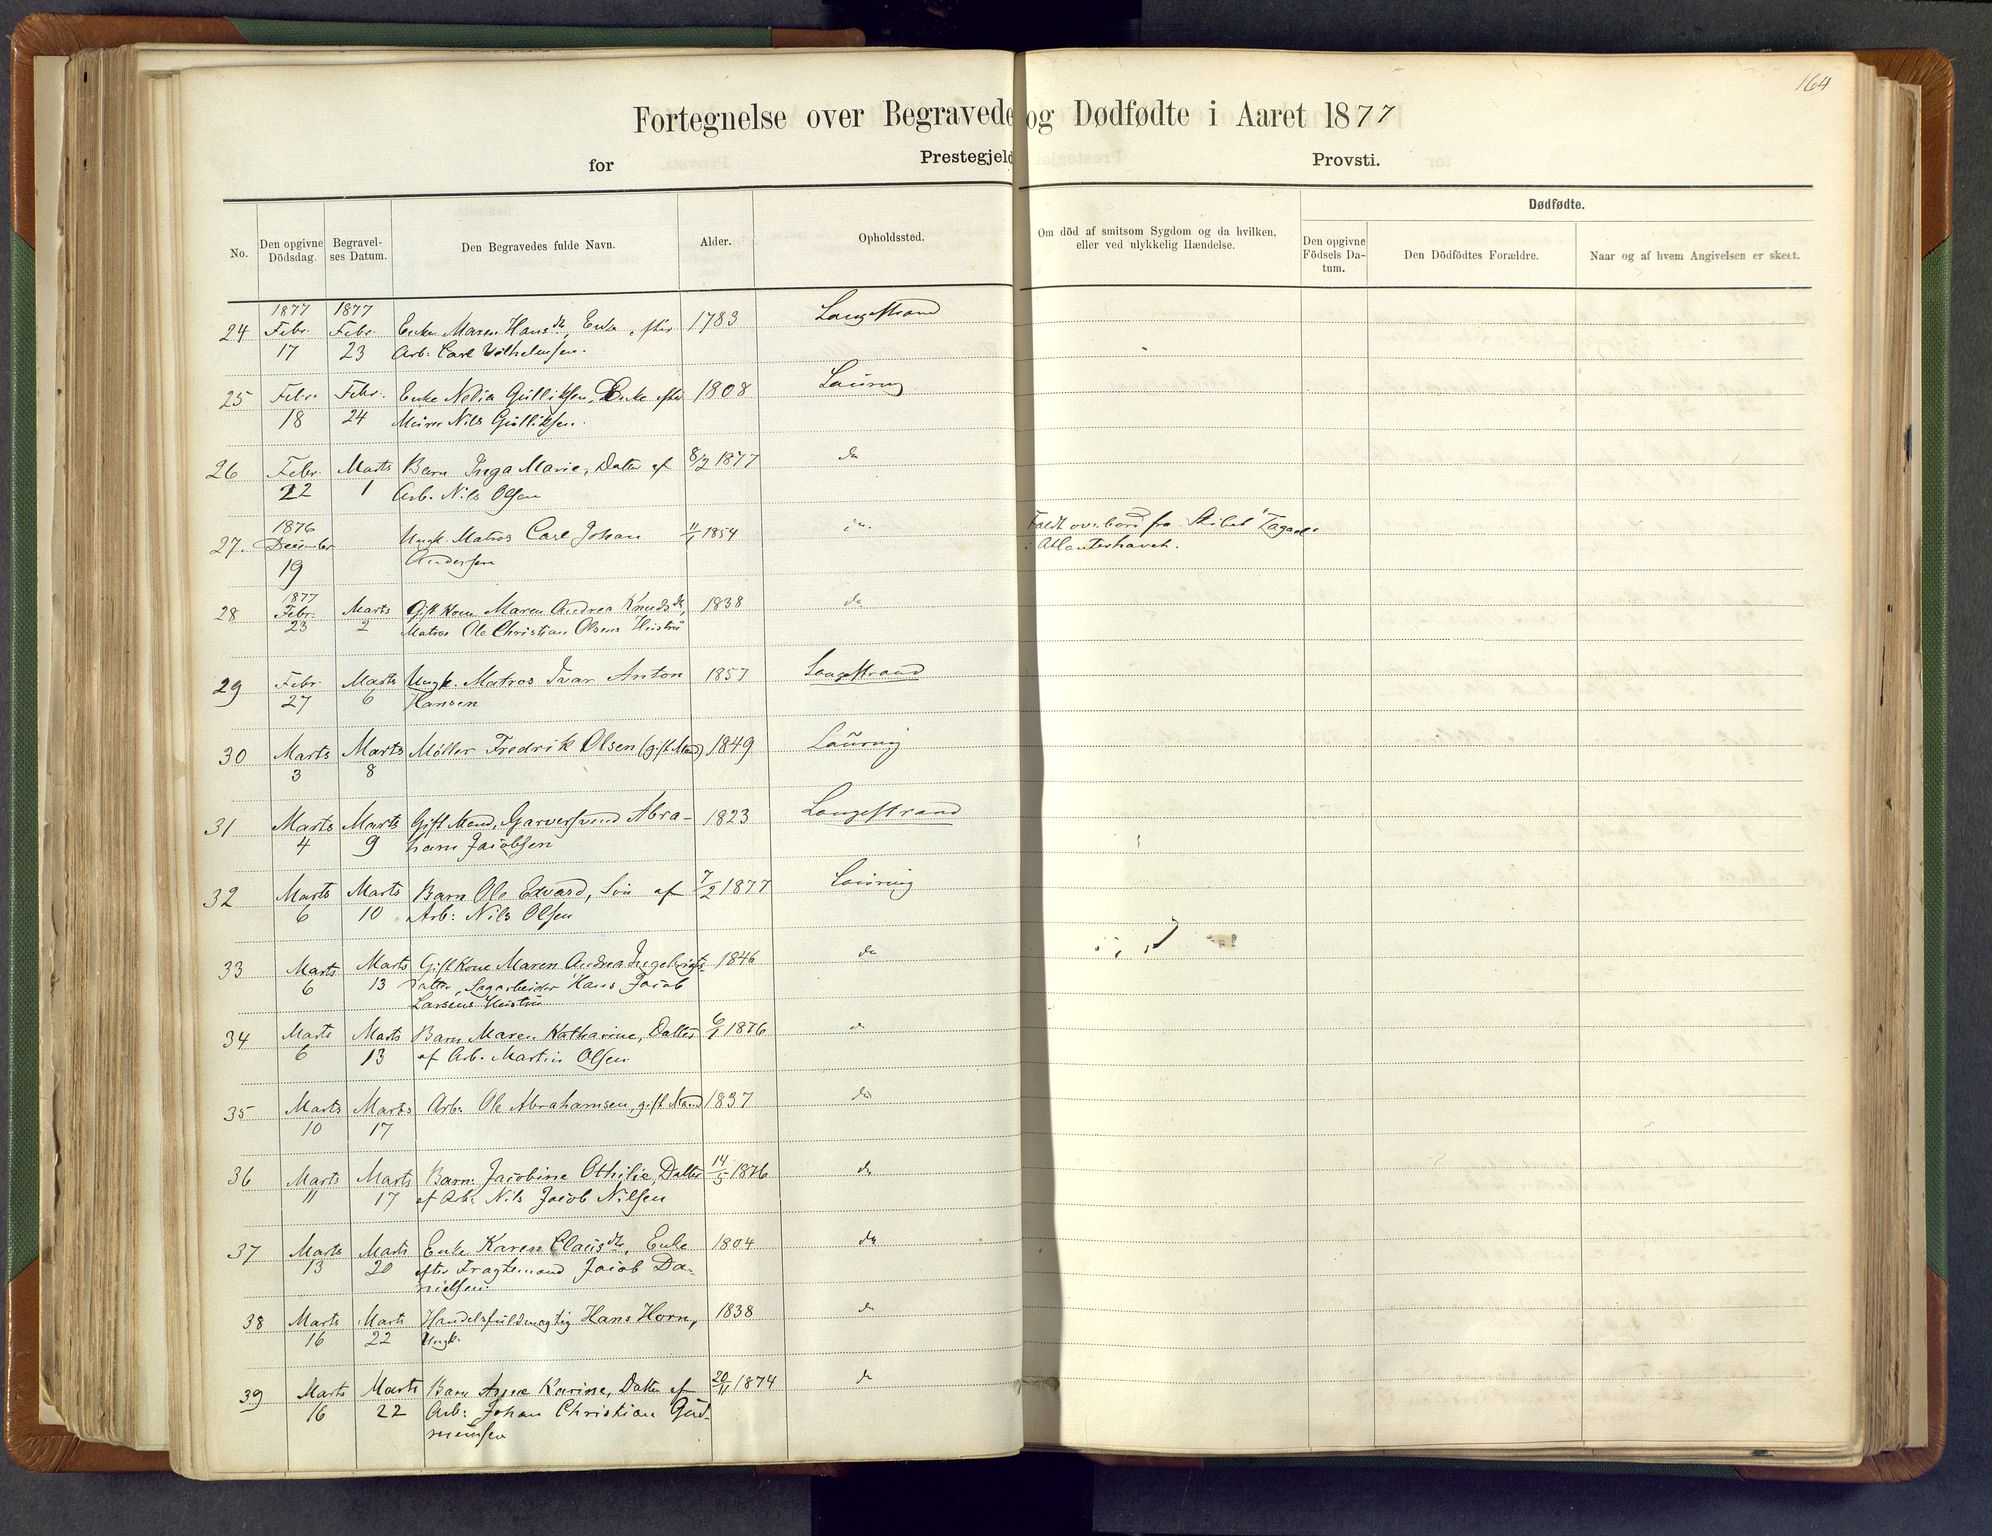 164
Fortegnelse over Begravede og Dødfødte i Aaret 1877
for Prestegjeld Provsti.
No.
Den opgivne Dödsdag.
Begravel-
ses Datum.
Den Begravedes fulde Navn.
Alder.
Opholdssted.
Om död af smitsom Sygdom og da hvilken,
eller ved ulykkelig Hændelse.
Dødfødte.
Den opgivne
Födsels Da-
tum.
Den Dödfödtes Forældre.
Naar og af hvem Angivelsen er skeet.
1877 1877
24 Febr. Febr. Enke Maren Hansdtr, Enke efter 1783 Langestrand
17 23 Arb. Carl Vilhelmsen.
25 Febr. Febr. Enke Nelia Gulliksen, Enke efter 1808 Laurvig
18 24 Murer Nils Gulliksen.
26 Febr. Marts Barn Inga Marie, Datter af 8/2 1877 do
22 1 Arb. Nils Olsen
1876
27. December Ungk. Matros Carl Johan 11/1 1854 do Faldt overbord fra Skibet
19 Andersen i Atlanterhavet.
1877
28 Febr. Marts Gift Kone Maren Andrea Knudsdr, 1838 do
23 2 Matros Ole Christian Olsens Hustru
29 Febr. Marts Ungk. Matros Ivar Anton 1857 Langestrand
27 6 Hansen
30 Marts Marts Møller Fredrik Olsen (gift Mand) 1849 Laurvig
3 8
31 Marts Marts Gift Mand, Garversvend Abra- 1823 Langestrand
4 9 ham Jacobsen
32 Marts Marts Barn Ole Edvard, Søn af 7/2 1877 Laurvig
6 10 Arb: Nils Olsen
33 Marts Marts Gift Kone Maren Andrea Ingebrigts- 1846 do
6 13 datter, Sagarbeider Hans Jacob
Larsens Hustru
34 Marts Marts Barn Maren Katharine, Datter 6/1 1876 do
6 13 af Arb. Martin Olsen
35 Marts Marts Arb: Ole Abrahamsen, gift Mand 1837 do
10 17
36 Marts Marts Barn: Jacobine Othilie, Datter 14/5 1876 do
11 17 af Arb: Nils Jacob Nilsen
37 Marts Marts Enke Karen Clausdtr, Enke 1804 do
13 20 efter Fragtemand Jacob Da-
nielsen.
38 Marts Marts Handelsfuldmægtig Hans Horn, 1838 do
16 22 Ungk.
39 Marts Marts Barn Anna Karine, Datter af 20/11 1874 do
16 22 Arb: Johan Christian Gud-
mundsen